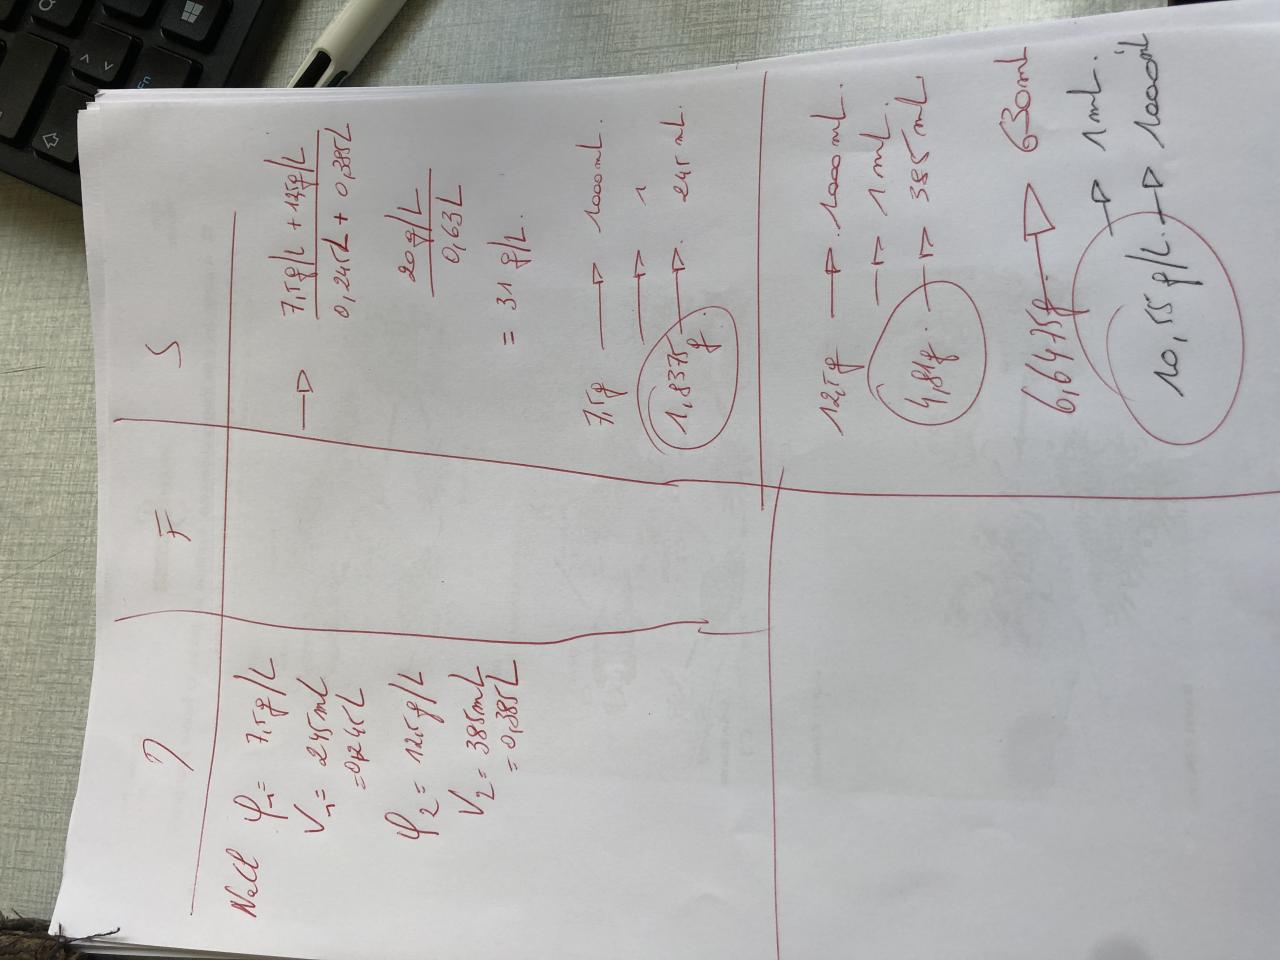 D F S
NaCl φ1 = 7,5 g/L
V1 = 245 mL
= 0,245 L
φ2 = 12,5 g/L
V2 = 385 mL
= 0,385 L
→ 7,5 g/L + 12,5 g/L
0,245 L + 0,385 L
20 g/L
0,63 L
= 31 g/L.
7,5 g → 1000 mL.
→ 1
1,8375 g. → 245 mL.
12,5 g → 1000 mL.
→ 1 mL.
4,81 g. → 385 mL
6,6475 g → 630 mL
→ 1 mL.
10,55 g/L. → 1000 mL
Fn